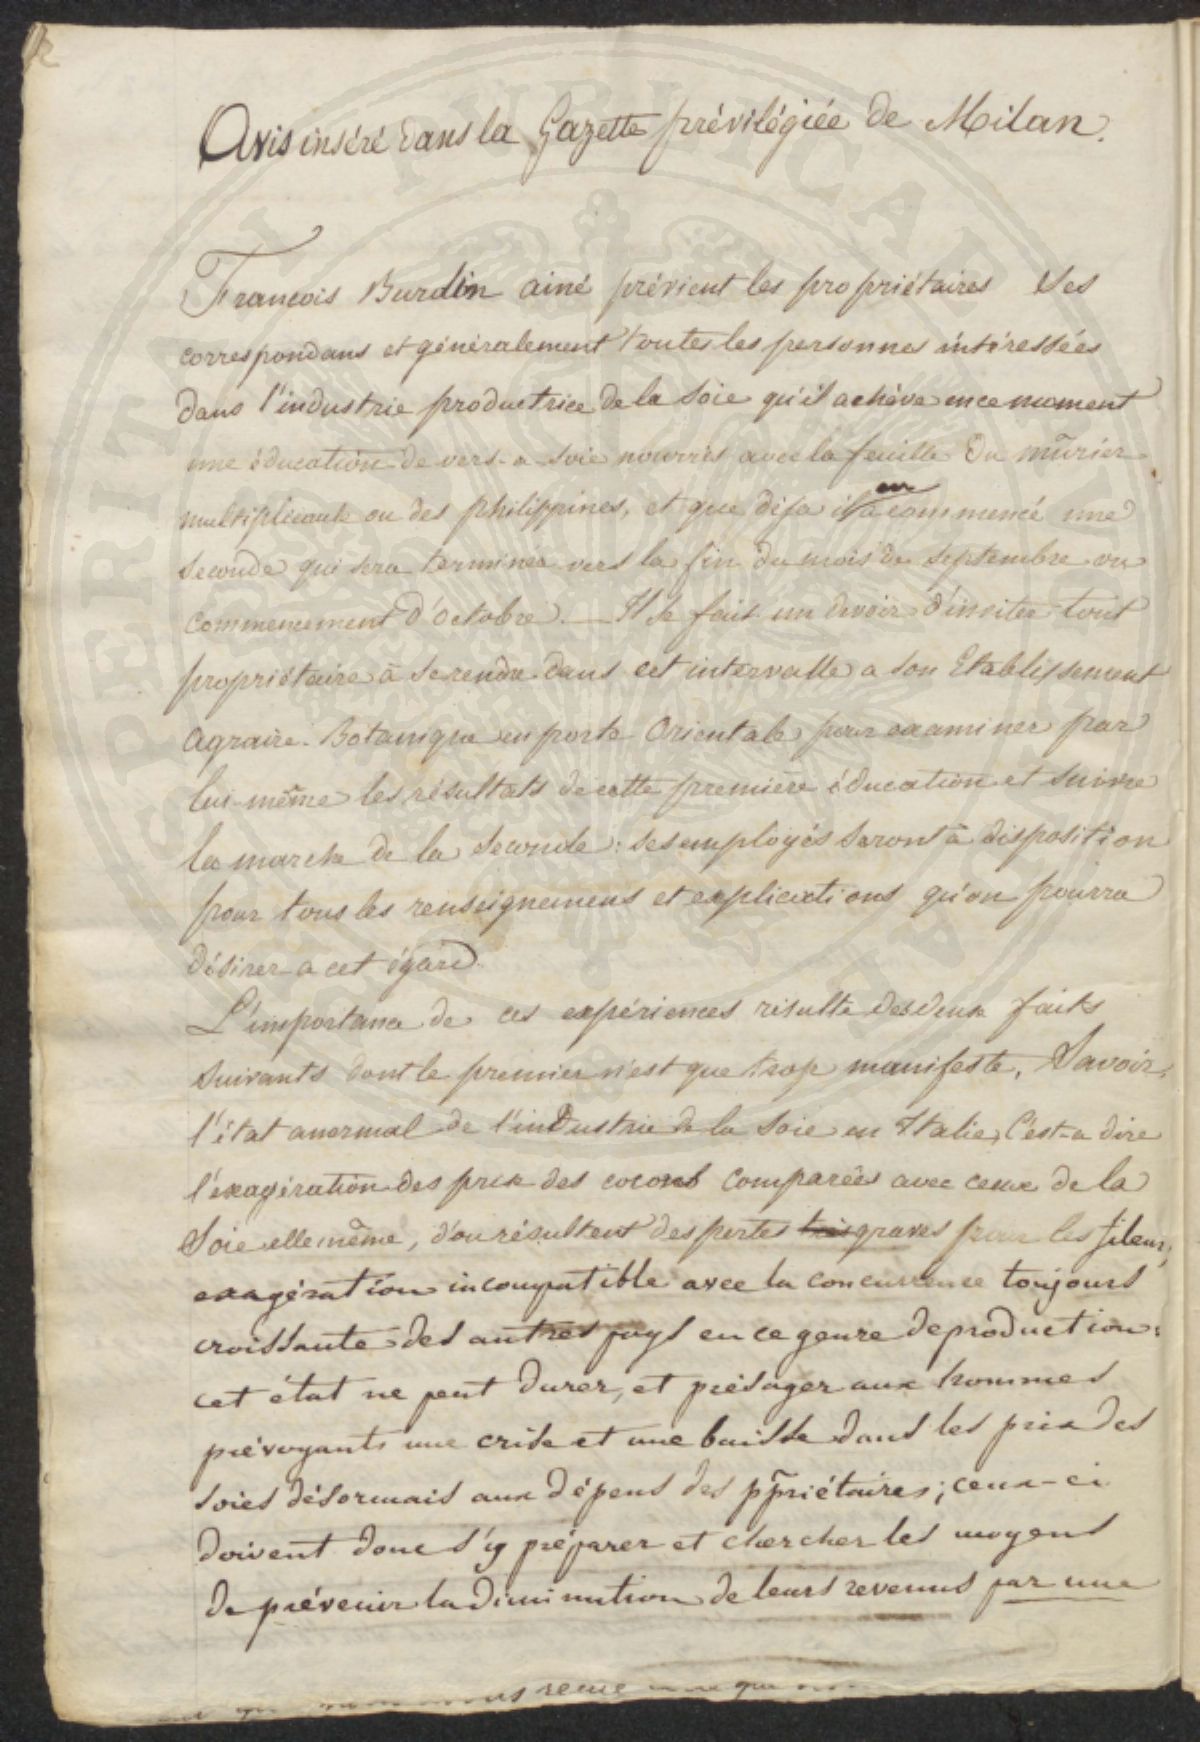 Avis inséré dans la Gazette prévilégiée de Milan.
François Burdin ainé prévient les propriétaires Ses
correspondans et généralement toutes les personnes intéressées
dans l'industrie productrice de la Soie qu'il achève en ce moment
une éducation de vers-a-soie nourris avec la feuille du mûrier
multiplicaule ou des philippines, et que déja il en a commencé une
seconde qui sera terminée vers la fin du mois de Septembre ou
commencement d'octobre. — Il se fait un devoir d'inviter tout
propriétaire à se rendre dans cet intervalle a son Etablissement
Agraire-Botanique en porte Orientale pour examiner par
lui-même les résultats de cette première éducation et suivre
la marche de la seconde : ses employés seront à disposition
pour tous les renseignemens et explications qu'on pourra
désirer a cet égard.
L'importance de ces expériences résulte des deux faits
suivants dont le premier n'est que trop manifeste, Savoir,
l'état anormal de l'industrie de la Soie en Italie, C'est-a dire
l'exagération des prix des cocons comparées avec ceux de la
Soie elle même, d'ou résultent des pertes très graves pour les fileurs,
exagération incompatible avec la concurrence toujours
croissante des autres pays en ce genre de production :
cet état ne peut durer, et présager aux hommes
prévoyants une crise et une baisse dans les prix des
soies désormais aux dépens des ppriétaires ; ceux-ci
doivent donc s'y préparer et chercher les moyens
de prévenir la diminution de leurs revenus par une
SPERITATI PUBLICAE